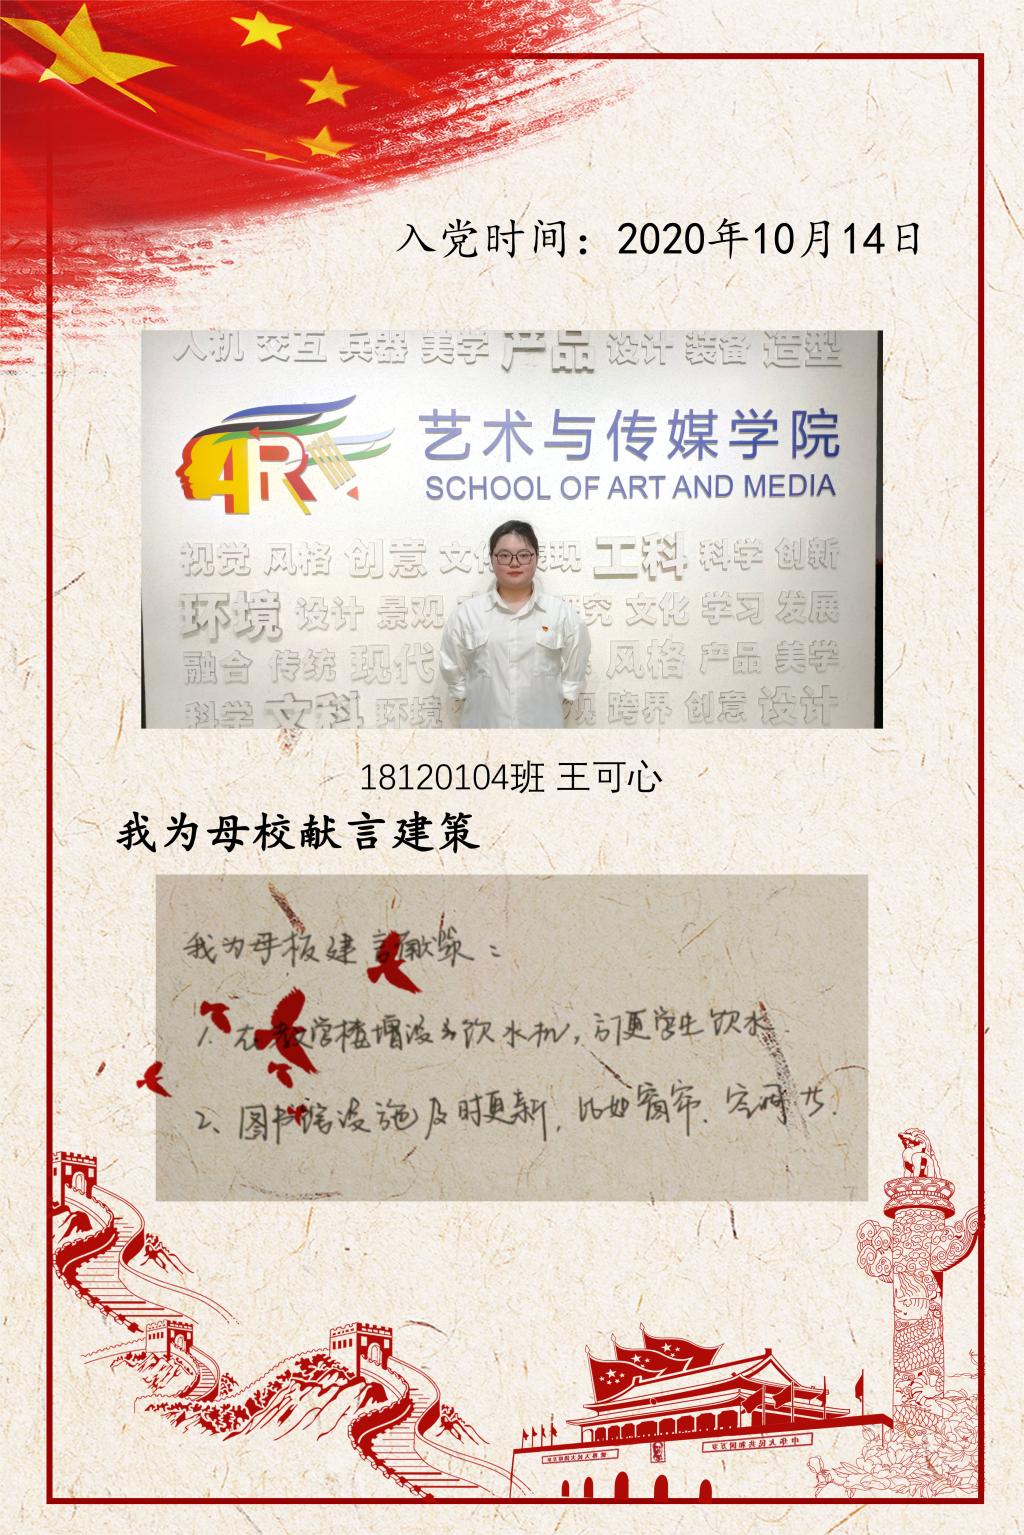 入党时间：2020年10月14日
人机 交互 兵器 美学 产品 设计 装备 造型
艺术与传媒学院
SCHOOL OF ART AND MEDIA
视觉 风格 创意 文化 表现 工科 科学 创新
环境 设计 景观 研究 文化 学习 发展
融合 传统 现代 风格 产品 美学
科学 文科 环境 跨界 创意 设计
18120104班 王可心
我为母校献言建策
我为母校建言献策：
1. 在教学楼增设多饮水机，方便学生饮水.
2、图书馆设施及时更新，比如窗帘、空调等.